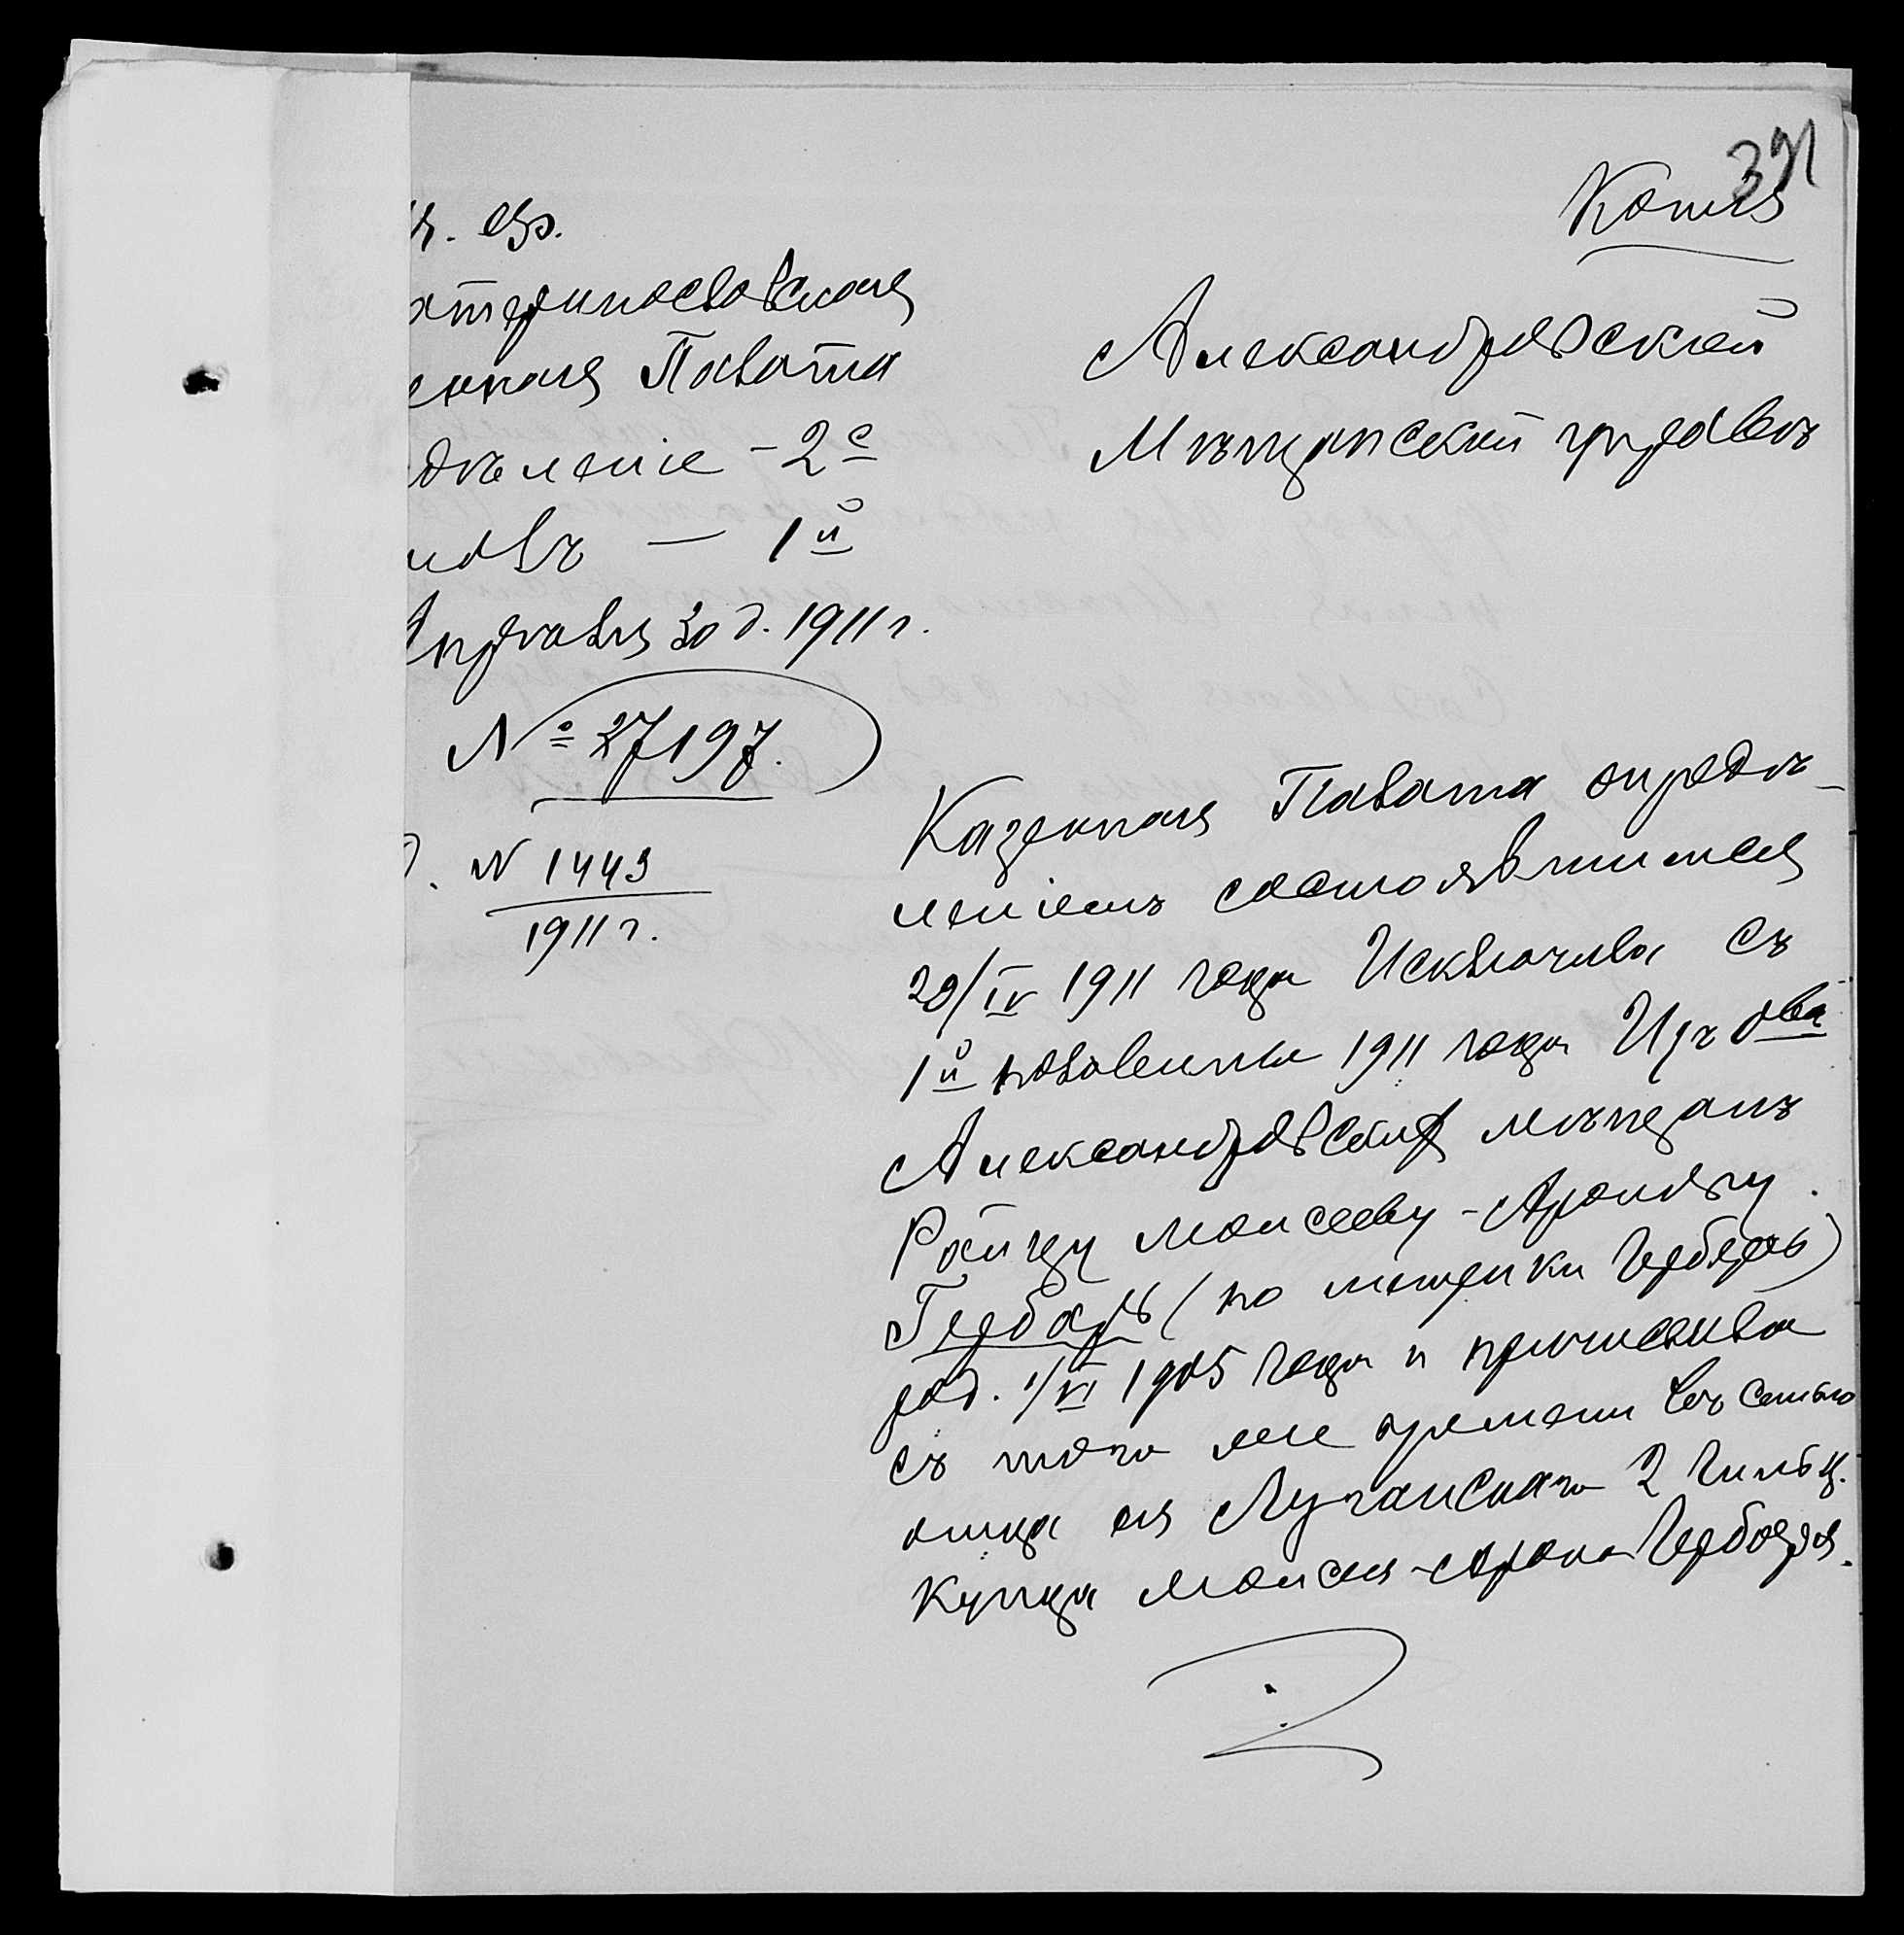 391
Копія
атеринославская
енная Палата
дѣленіе - 2е
толъ — 1й
Апрѣля 30 д. 1911 г.
№ 27197.
№ 1443
1911 г.
Александровской
Мѣщанской управѣ
Казенная Палата опредѣ-
леніемъ состоявшимся
20/IV 1911 года Исключила съ
1й половины 1911 года Изъ
Александровскихъ мѣщанъ
Рейзу Моисееву-Аронову
Гербаръ (по метрики Герберъ)
род. 1/VI 1905 года и причислила
съ того же времени въ семью
отца ея Луганскаго 2 гильд.
купца Моисея-Арона Гербаря.